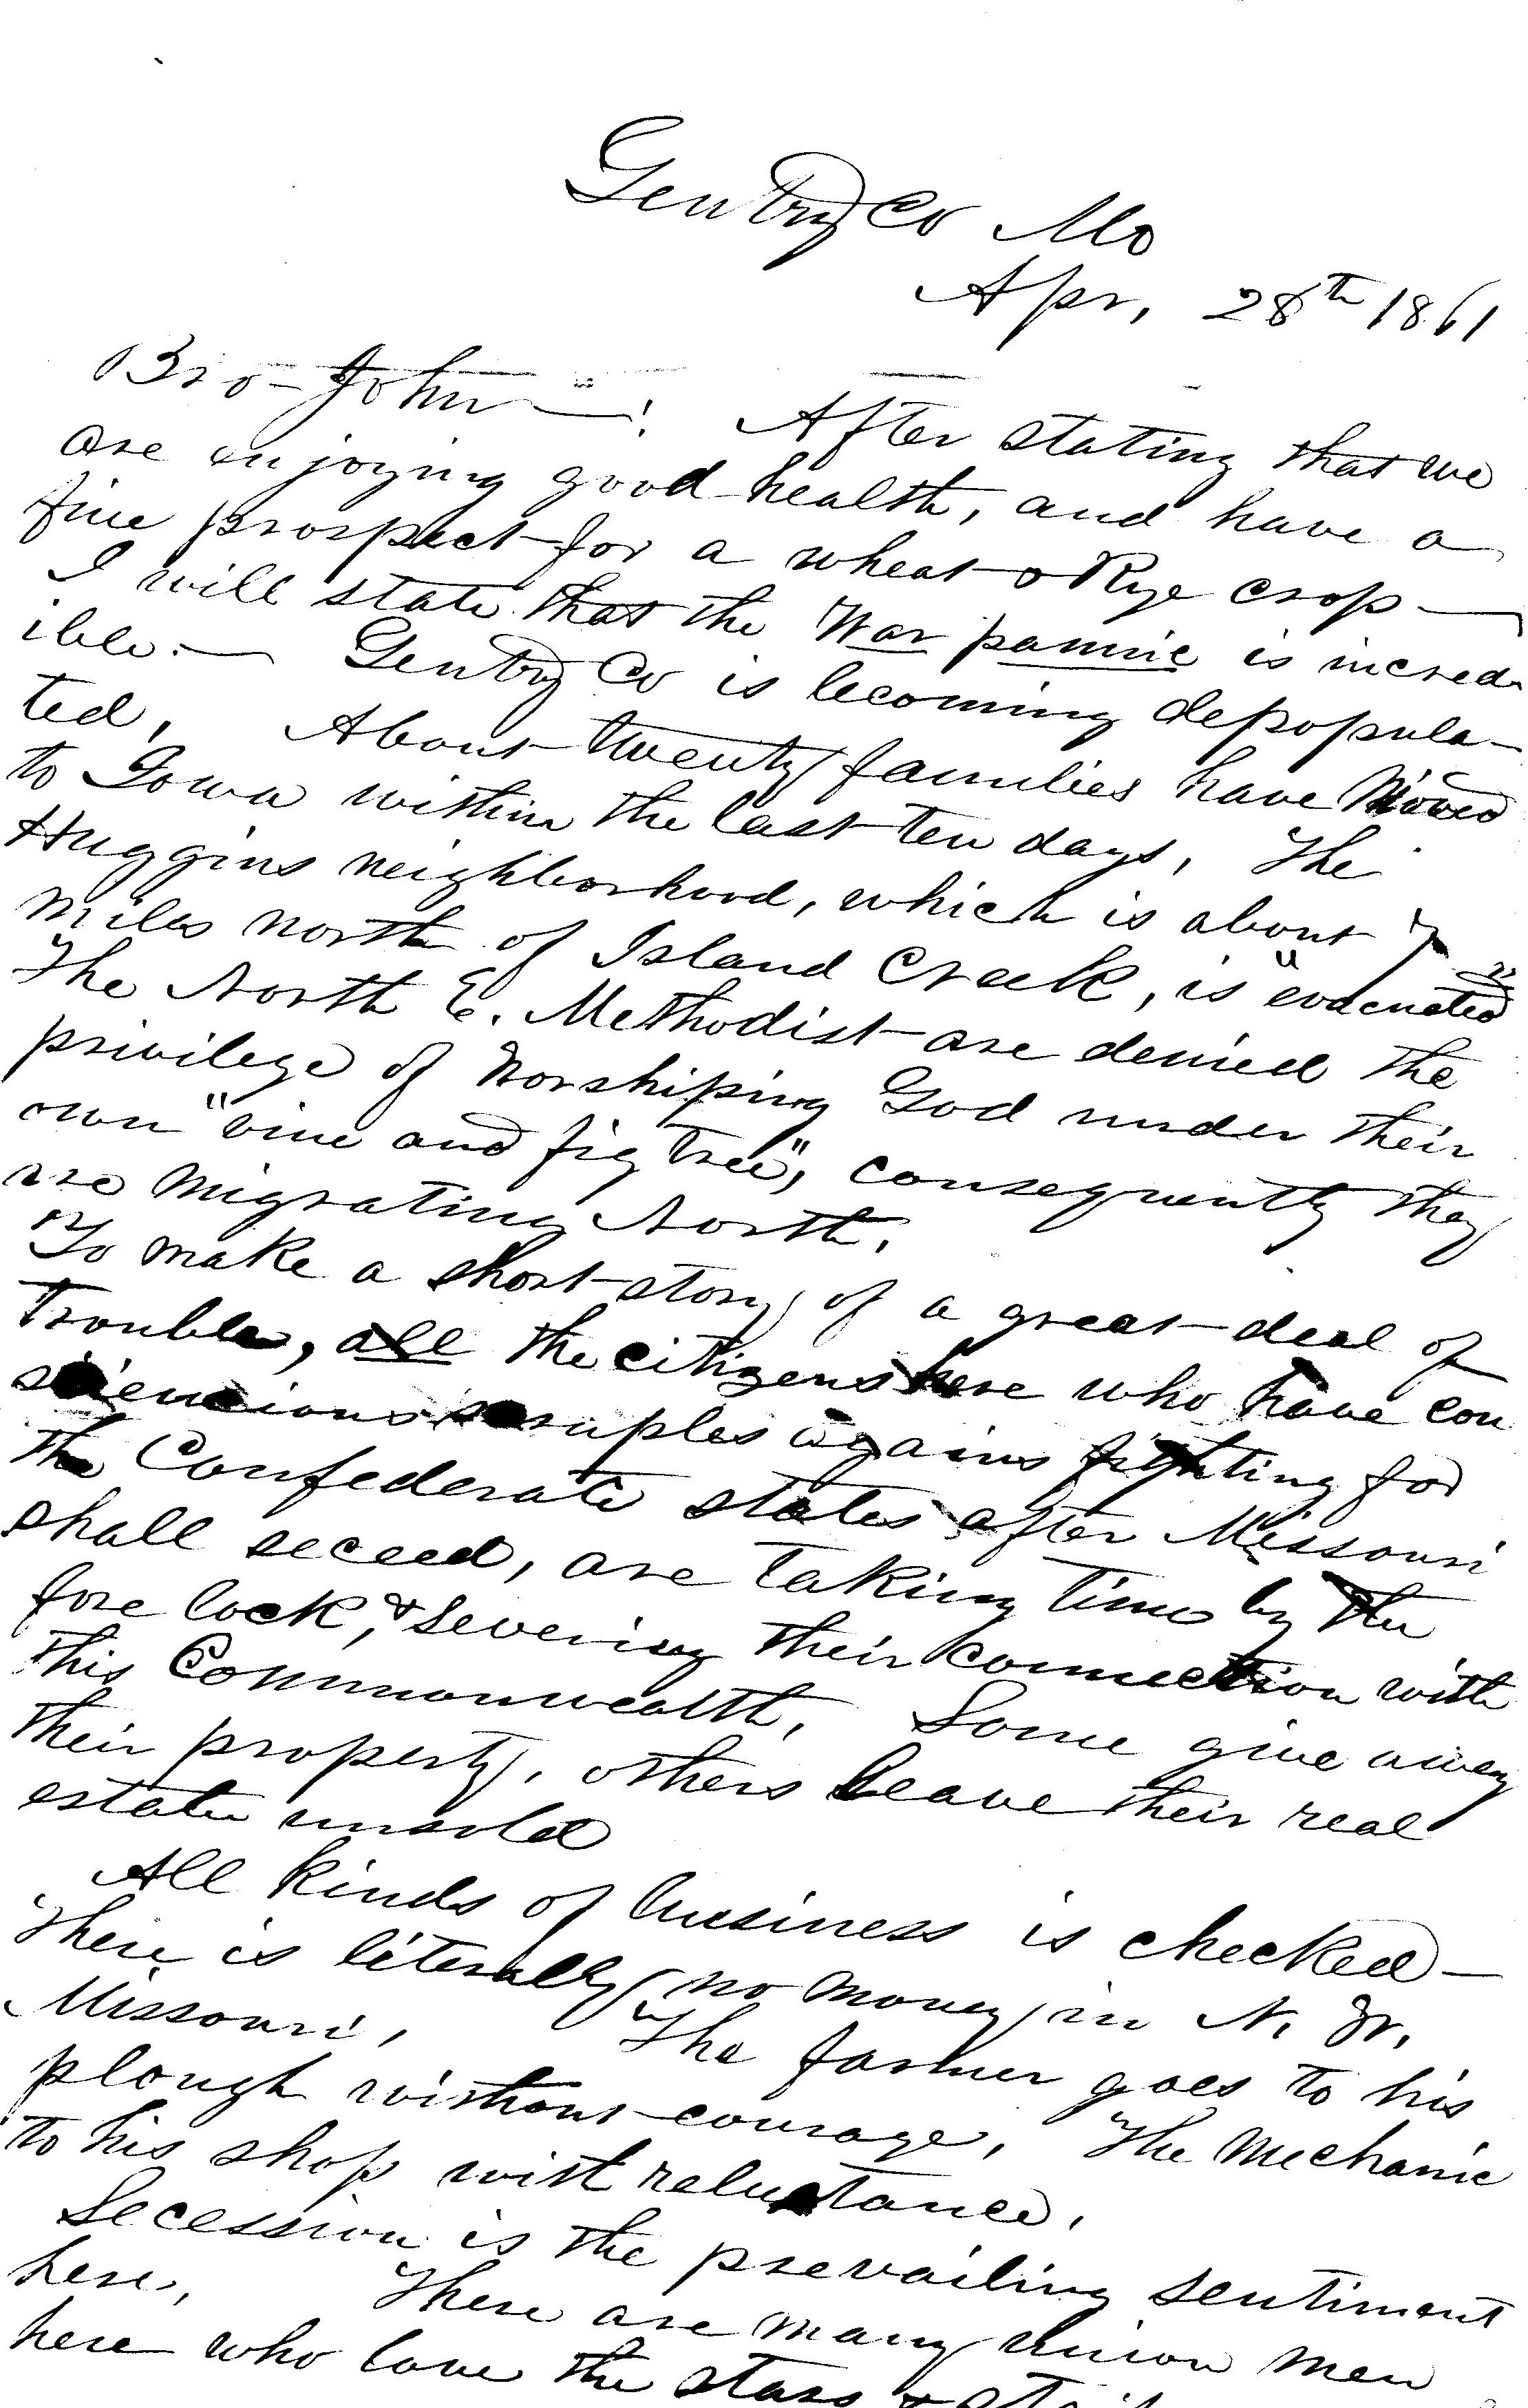 Gentry Co Mo
Apr, 28th 1861
Bro-John—! After stating that we
are enjoying good health, and have a
fine prospect for a wheat & Rye crop—
I will state that the War pannic is incred-
ible.— Gentry Co is becoming depopula-
ted, About twenty families have Moved
to Iowa within the last ten days, The
Huggins neighborhood, which is about 7
miles north of Island Creek, is "evacuated"
The North E. Methodist are denied the
privilege of Worshiping God under their
own "vine and fig tree", consequently they
are Migrating North.
To make a short story of a great deal of
trouble, all the citizens here who have con
sciencious scruples agains fighting for
the Confederate states after Missouri
shall seceed, are taking time by the
fore lock, & severing their connection with
this Commonwealth, Some give away
their property, others leave their real
estate unsold
All kinds of business is checked—
There is literally no money in N. W.
Missouri, The farmer goes to his
plough without courage, The Mechanic
to his shop wist reluctance,
Secession is the prevailing sentiment
here, There are many union men
here who love the stars &